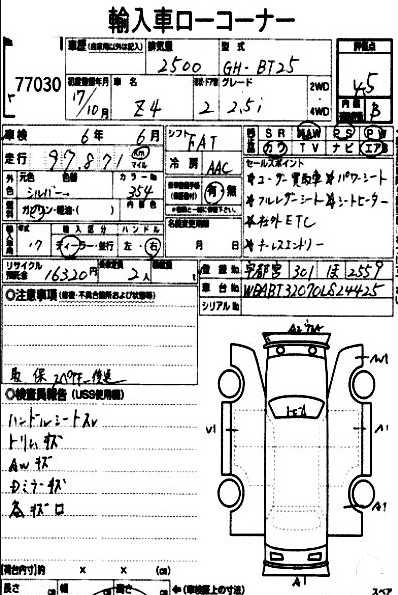 輸入車ローコーナー
77030
車歴 排気量 型式 評価点
2500 GH-BT25 4.5
初度登録年月 車名 ドア数 グレード 2WD 4WD
17/10月 Z4 2 2.5i 内装 B
車検 6年 6月 シフト FAT
SR AW PS PW
カワ TV ナビ エアB
走行 97,871 Km マイル 冷房 AAC
セールスポイント
外色 元色 色替 カラーNo 有・無
シルバー 354
*ユーザー買取車 *パワーシート
*フルレザーシート *シートヒーター
燃料 ガソリン・軽油・( ) 内装色
*社外ETC
輸入区分 ハンドル 名義変更期限
*キーレスエントリー
'17 ディーラー・並行 左・右 月 日
リサイクル預託金 16320円 乗車定員 2人
登録No. 宇都宮 301 ほ 2559
車台No. WBABT32070LS24425
シリアルNo.
○注意事項(修復・不具合箇所および状態等)
取保スペアキー後送
○検査員報告(USS使用欄)
ハンドルシートスレ
トリムキズ
AWキズ
Dミラーキズ
各キズロ
A1
U1
A1
A1
A1
【荷台内寸】約 × × (cm)
長さ 幅 高さ ←(車検証上の寸法)
スペア